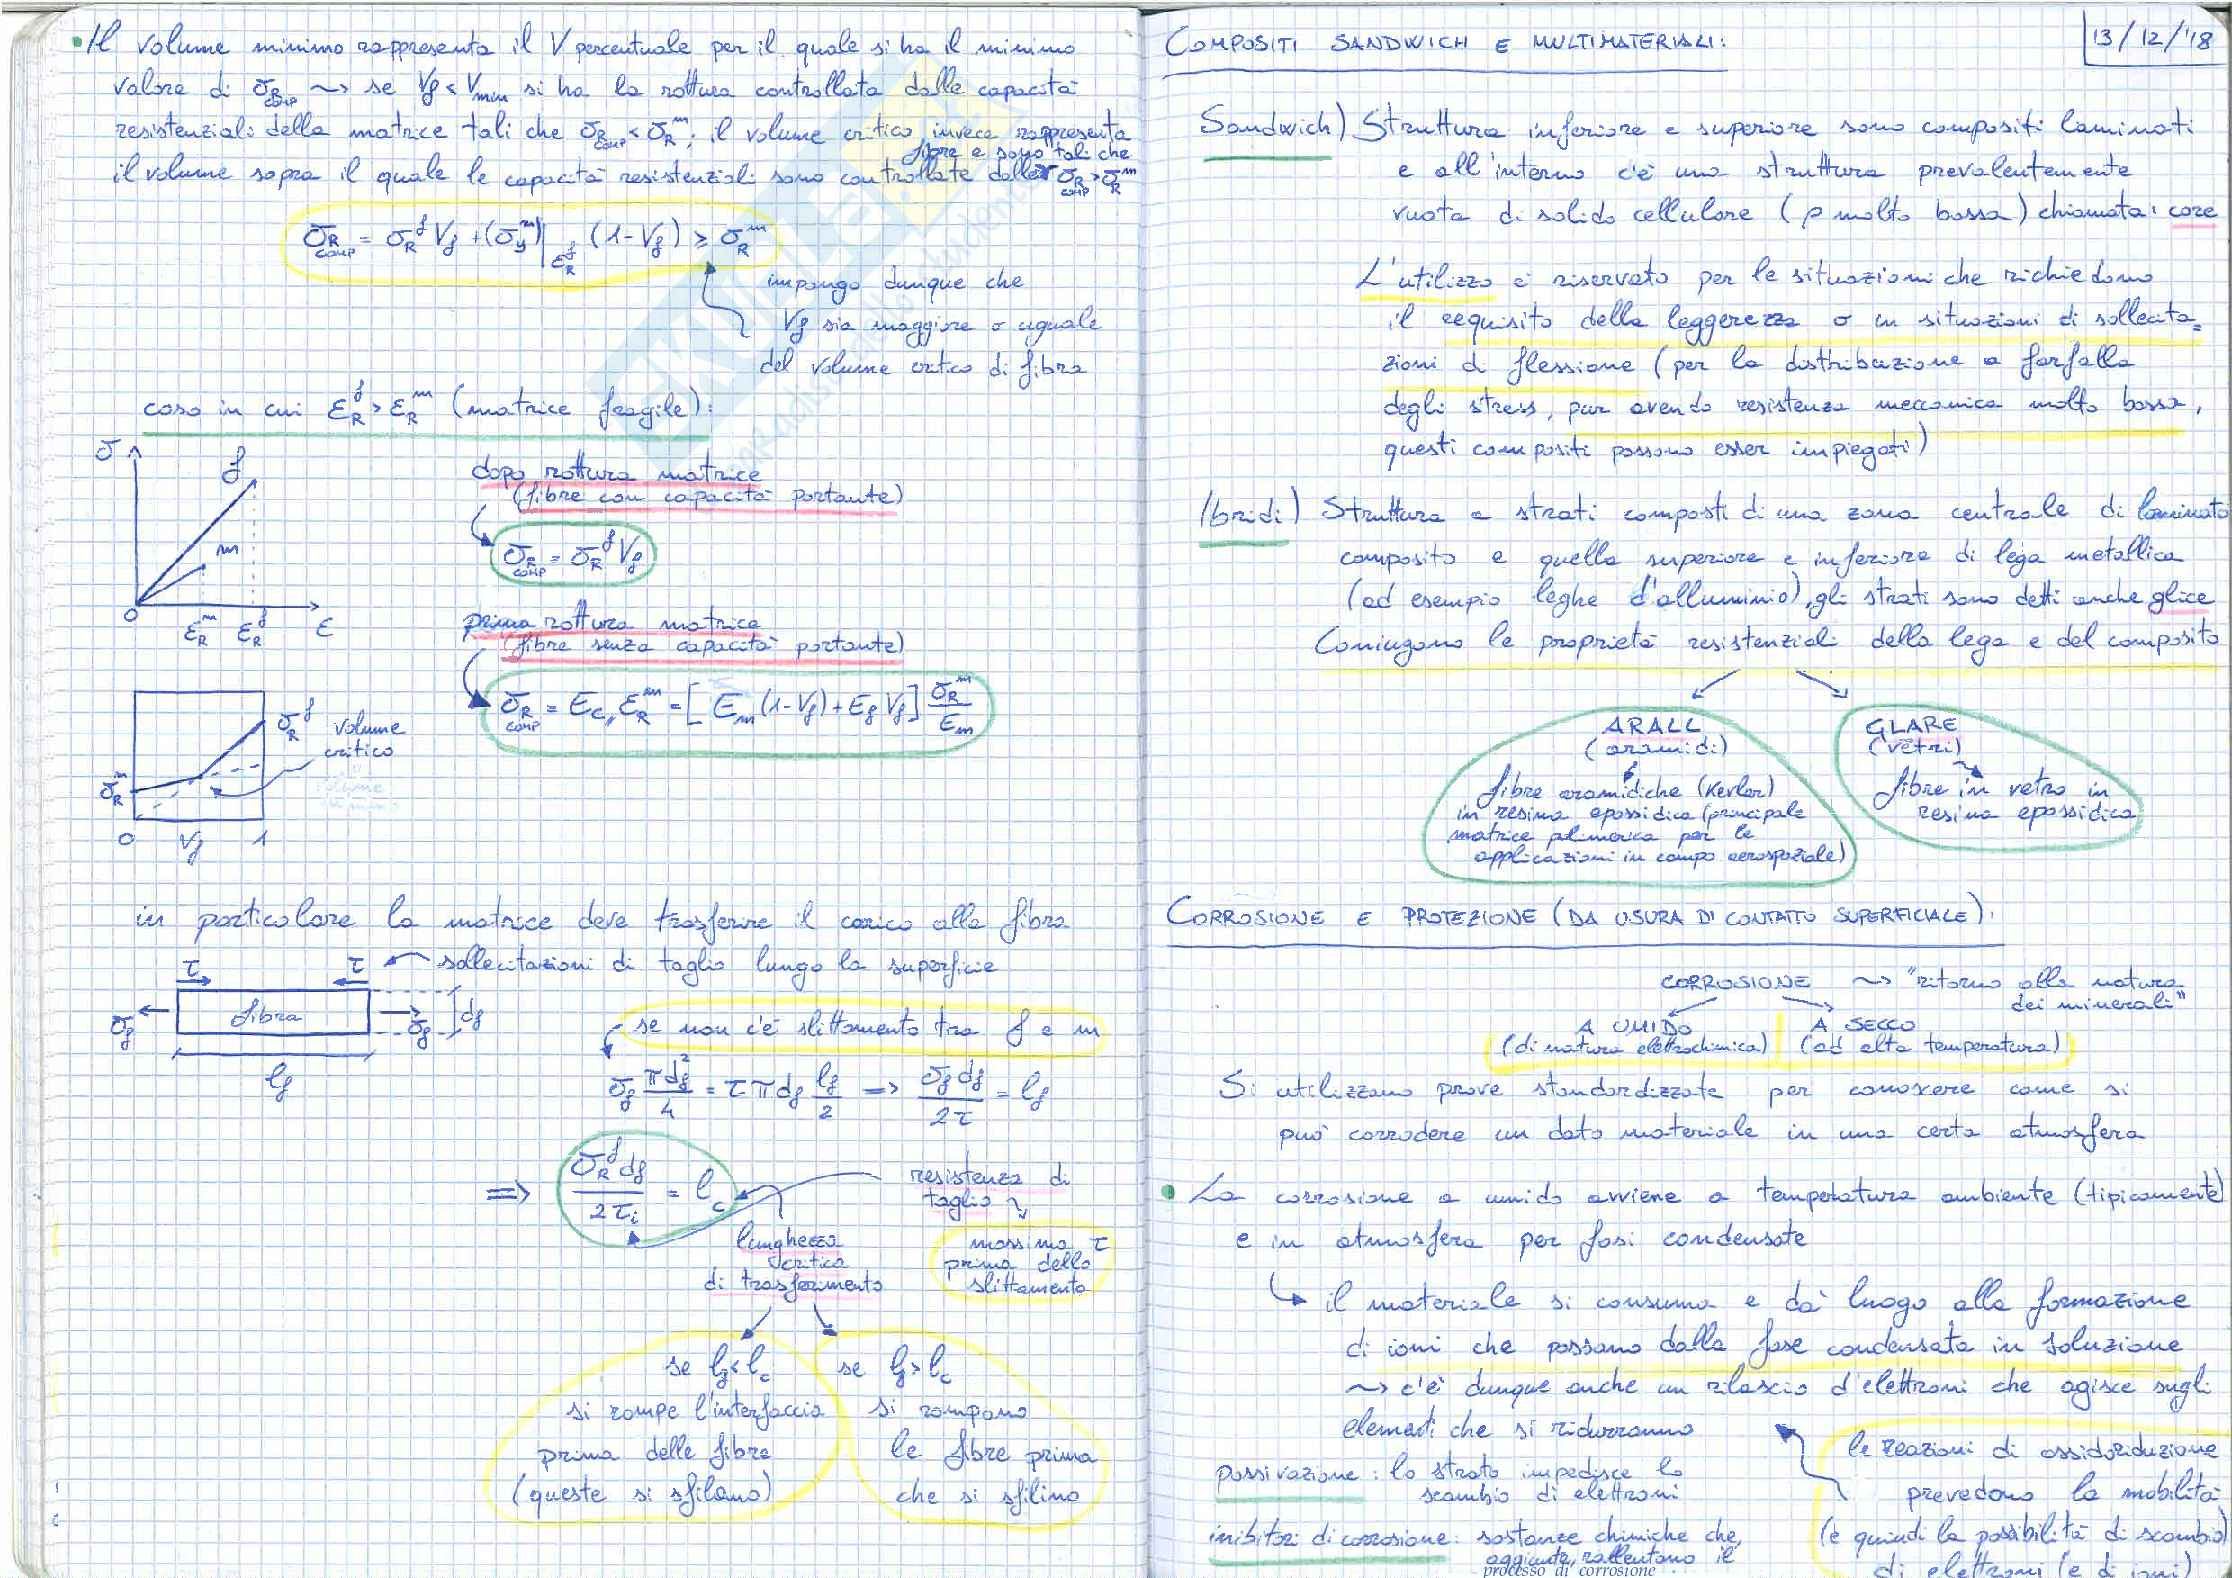 • Il volume minimo rappresenta il V percentuale per il quale si ha il minimo
valore di σR comp ~> se Vf < Vmin si ha la rottura controllata dalle capacità
resistenziali della matrice tali che σR comp < σR^m; il volume critico invece rappresenta
il volume sopra il quale le capacità resistenziali sono controllate dalle fibre e sono tali che σR comp > σR^m
σR comp = σR^f Vf + (σy^m)|εR^f (1-Vf) ≥ σR^m
impongo dunque che
Vf sia maggiore o uguale
del volume critico di fibra
caso in cui εR^f > εR^m (matrice fragile):
σ
f
m
0
εR^m εR^f ε
dopo rottura matrice
(fibre con capacità portante)
σR comp = σR^f Vf
prima rottura matrice
(fibre senza capacità portante)
σR comp = Ec,, εR^m = [Em (1-Vf) + Ef Vf] σR^m / Em
σR^f
volume
critico
σR^m
0 Vf 1
in particolare la matrice deve trasferire il carico alla fibra
τ τ sollecitazioni di taglio lungo la superficie
σf fibra σf df
lf
se non c'è slittamento tra f e m
σf πdf²/4 = τ π df lf/2 => σf df / 2τ = lf
=> σR^f df / 2τi = lc
resistenza di
taglio
massima τ
prima dello
slittamento
lunghezza
critica
di trasferimento
se lf < lc
si rompe l'interfaccia
prima delle fibre
(queste si sfilano)
se lf > lc
si rompono
le fibre prima
che si sfilino
COMPOSITI SANDWICH E MULTIMATERIALI:
13/12/'18
Sandwich) Struttura inferiore e superiore sono compositi laminati
e all'interno c'è una struttura prevalentemente
vuota di solido cellulare (ρ molto bassa) chiamata: core
L'utilizzo è riservato per le situazioni che richiedono
il requisito della leggerezza o in situazioni di sollecita=
zioni di flessione (per la distribuzione a farfalla
degli stress, pur avendo resistenza meccanica molto bassa,
questi compositi possono esser impiegati)
Ibridi) Struttura a strati composti di una zona centrale di laminato
composito e quella superiore e inferiore di lega metallica
(ad esempio leghe d'alluminio), gli strati sono detti anche glice
Coniugano le proprietà resistenziali della lega e del composito
ARALL
(aramidi)
fibre aramidiche (Kevlar)
in resina epossidica (principale
matrice polimerica per le
applicazioni in campo aerospaziale)
GLARE
(vetri)
fibre in vetro in
resina epossidica
CORROSIONE E PROTEZIONE (DA USURA DI CONTATTO SUPERFICIALE):
CORROSIONE ~> "ritorno alla natura
dei minerali"
A UMIDO
(di natura elettrochimica)
A SECCO
(ad alta temperatura)
Si utilizzano prove standardizzate per conoscere come si
può corrodere un dato materiale in una certa atmosfera
• La corrosione a umido avviene a temperatura ambiente (tipicamente)
e in atmosfera per fasi condensate
↳ il materiale si consuma e dà luogo alla formazione
di ioni che passano dalla fase condensata in soluzione
~> c'è dunque anche un rilascio d'elettroni che agisce sugli
elementi che si ridurranno
passivazione: lo strato impedisce lo
scambio di elettroni
inibitori di corrosione: sostanze chimiche che,
aggiunte, rallentano il
processo di corrosione
le reazioni di ossidoriduzione
prevedono la mobilità
(e quindi la possibilità di scambio)
di elettroni (e di ioni)